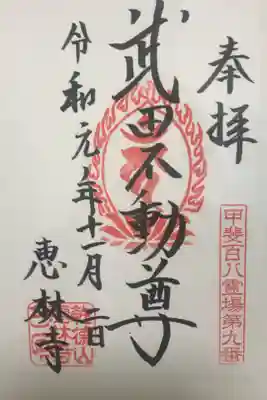 奉拝
甲斐百八霊場第九番
武田不動尊
令和元年十一月二日
恵林寺